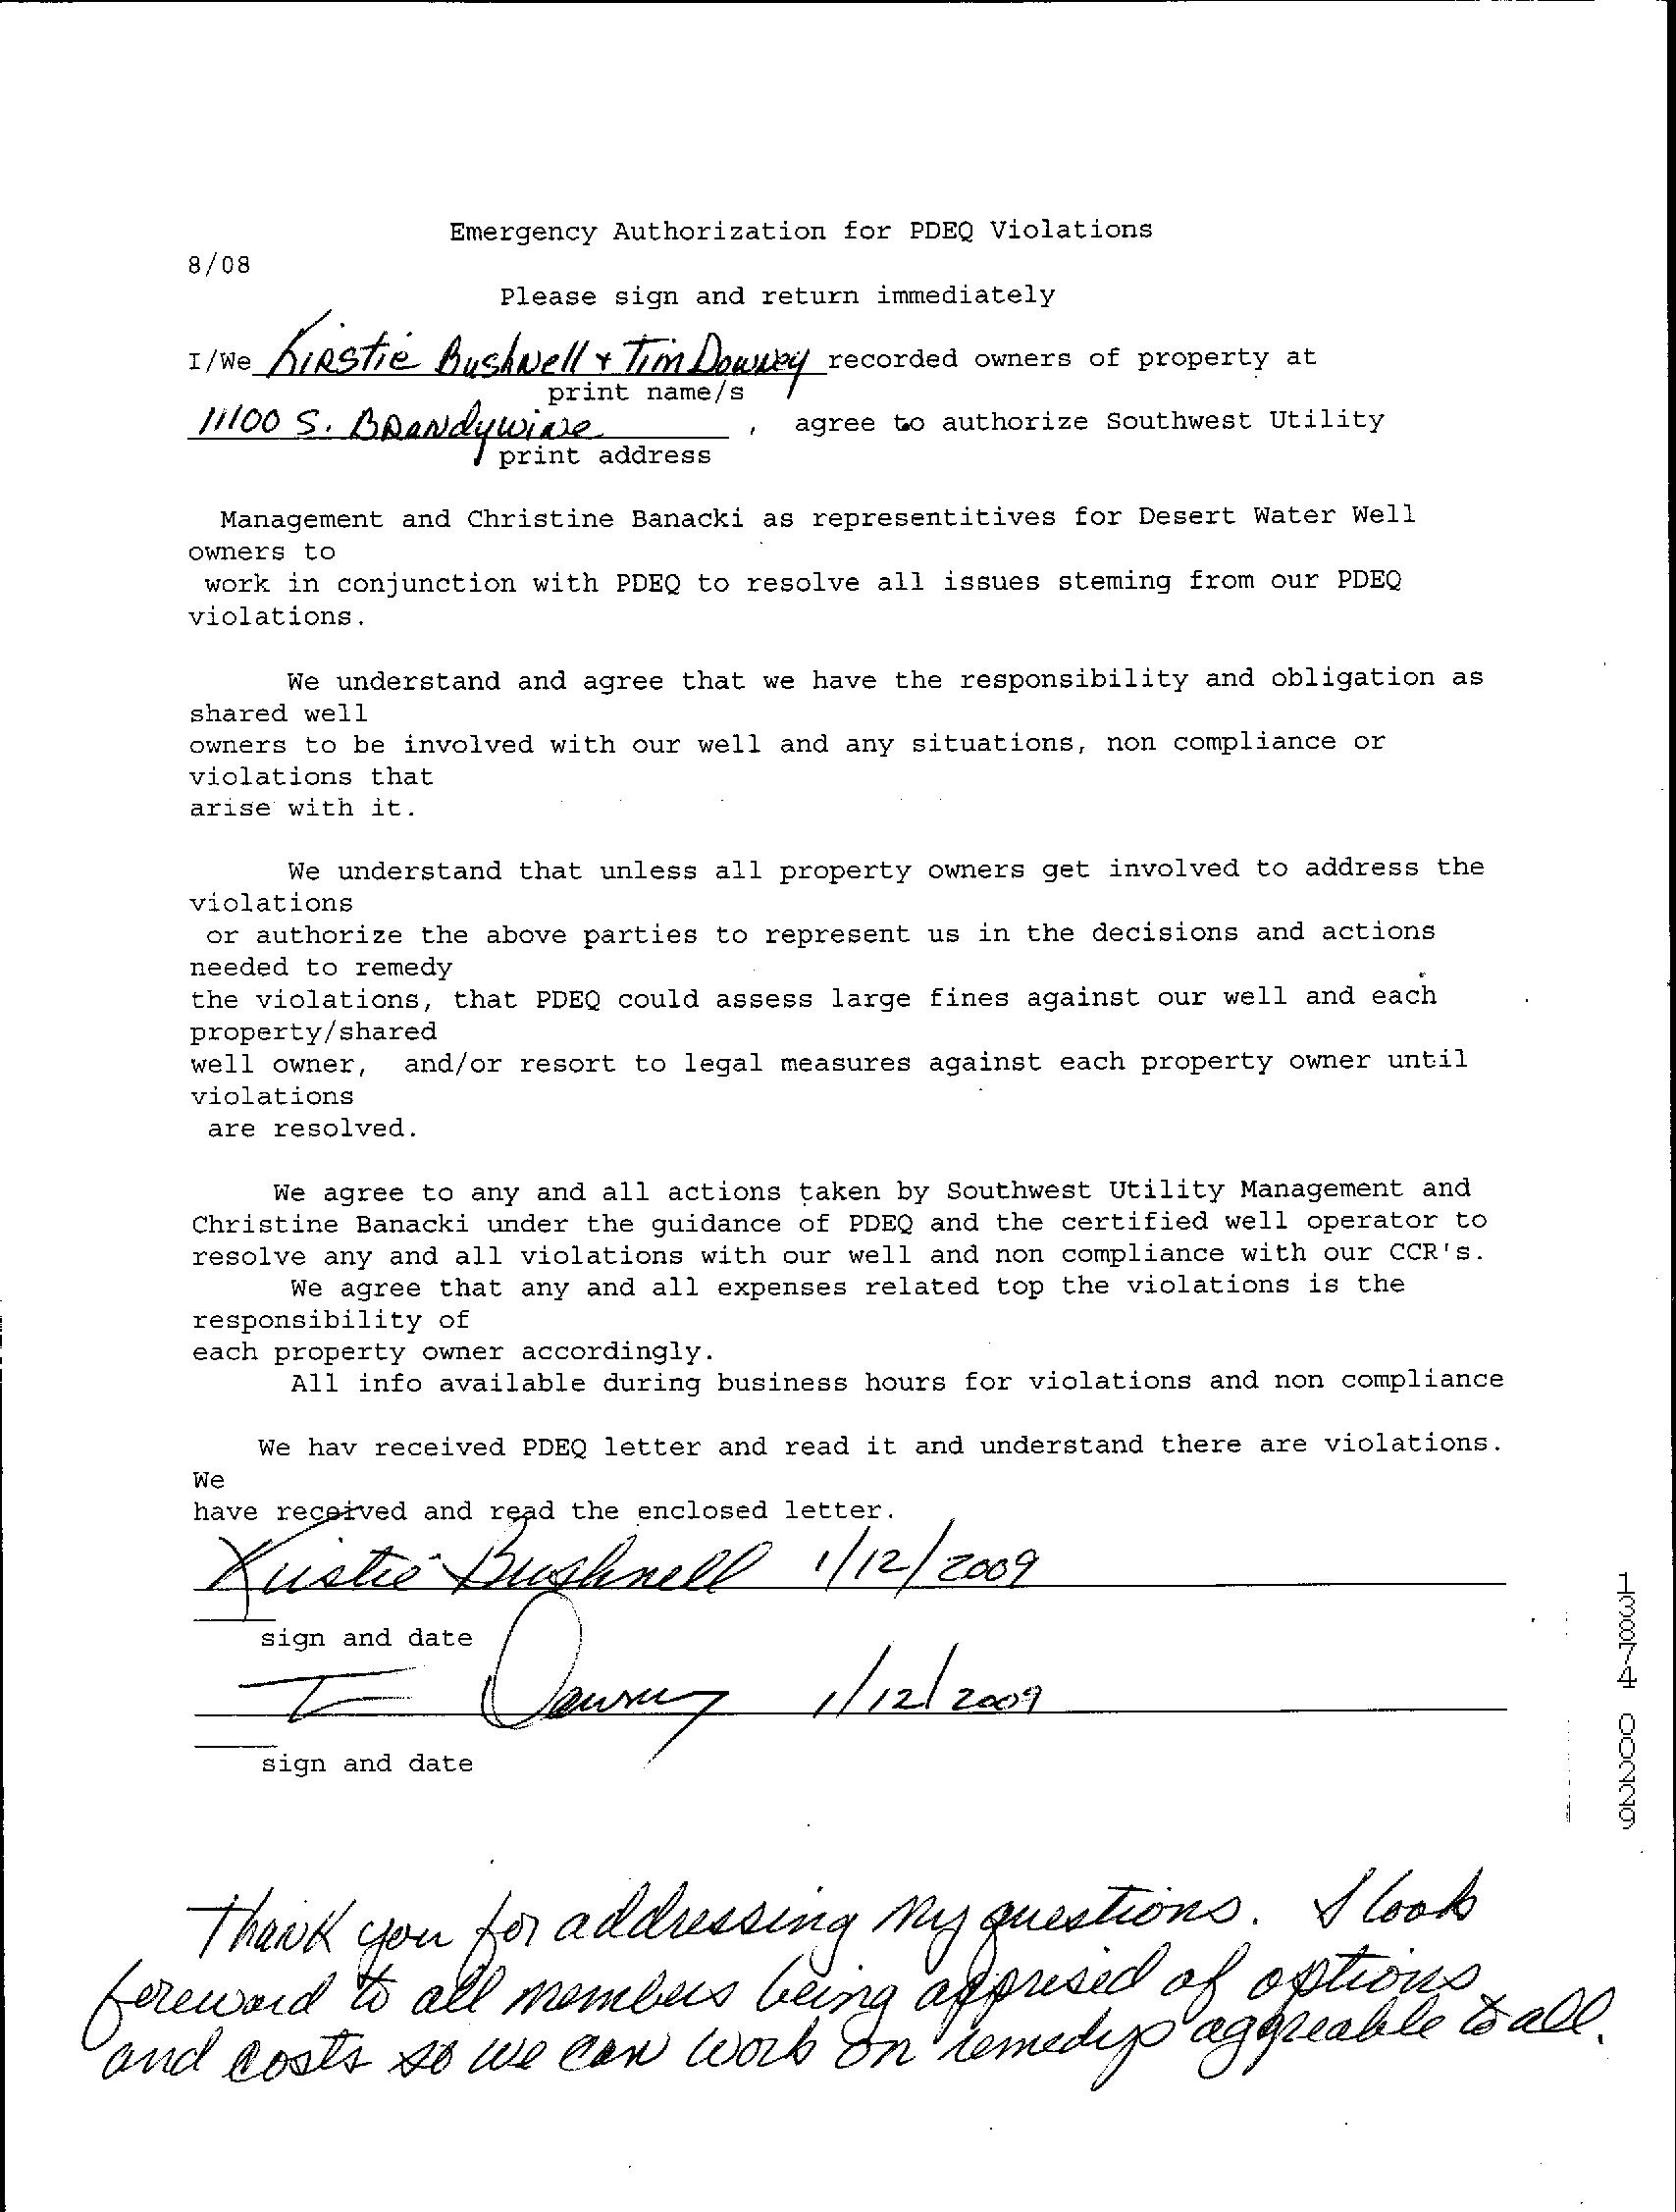 Emergency Authorization for PDEQ Violations
8/08
Please sign and return immediately
I/We Kirstie Bushnell & Tim Downey recorded owners of property at
print name/s
11100 S. Brandywine , agree to authorize Southwest Utility
print address
Management and Christine Banacki as representitives for Desert Water Well
owners to
work in conjunction with PDEQ to resolve all issues steming from our PDEQ
violations.
We understand and agree that we have the responsibility and obligation as
shared well
owners to be involved with our well and any situations, non compliance or
violations that
arise with it.
We understand that unless all property owners get involved to address the
violations
or authorize the above parties to represent us in the decisions and actions
needed to remedy
the violations, that PDEQ could assess large fines against our well and each
property/shared
well owner, and/or resort to legal measures against each property owner until
violations
are resolved.
We agree to any and all actions taken by Southwest Utility Management and
Christine Banacki under the guidance of PDEQ and the certified well operator to
resolve any and all violations with our well and non compliance with our CCR's.
We agree that any and all expenses related top the violations is the
responsibility of
each property owner accordingly.
All info available during business hours for violations and non compliance
We hav received PDEQ letter and read it and understand there are violations.
We
have received and read the enclosed letter.
Kirstie Bushnell 1/12/2009
sign and date
T Downey 1/12/2009
sign and date
Thank you for addressing my questions. I look
foreward to all members being apprised of options
and costs so we can work on remedys aggreable to all.
13874 00229